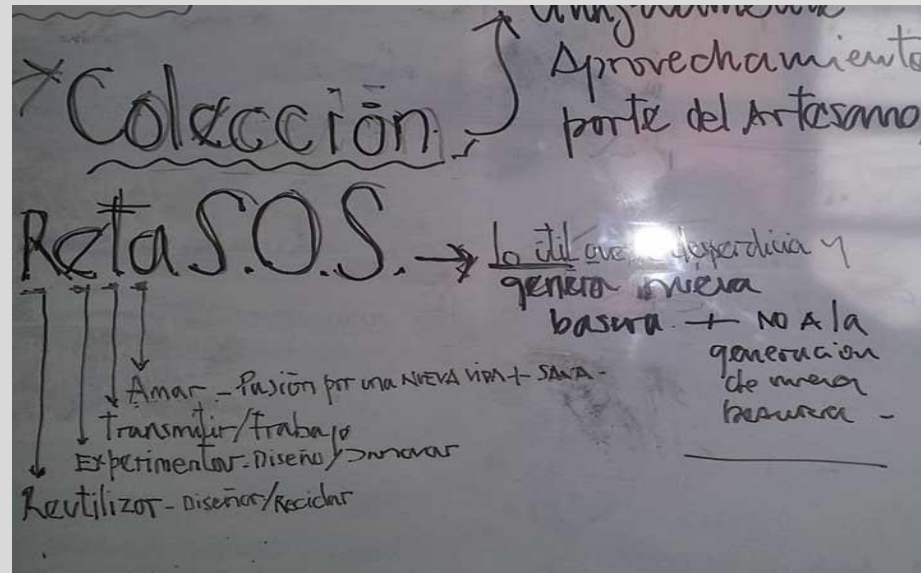 Aprovechamiento
porte del Artesano
*Colección
Reta S.O.S. → lo útil que desperdicia y
genera nueva
basura. + NO A la
generación
de nueva
basura -
Amar - Pasión por una NUEVA VIDA + SANA -
Transmitir/trabajo
Experimentar - Diseño/Innovar
Reutilizar - Diseñar/Reciclar